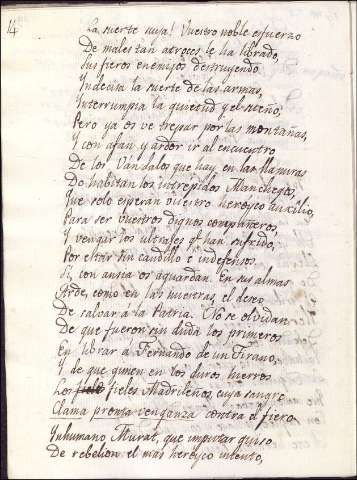 14
La suerte suya! Vuestro noble esfuerzo
De males tan atroces le ha librado,
Sus fieros enemigos destruyendo.
Yndecisa la suerte de las armas,
Interrumpia la quietud y el sueño,
Pero ya os ve trepar por las montañas,
Y con afan y ardor ir al encuentro
De los Vandalos que hay en las llanuras
Do habitan los intrepidos Manchegos,
Que solo esperan vuestro heroyco auxilio,
Para ser vuestros dignos compañeros,
Y vengar los ultrajes q.e han sufrido,
Por estar sin caudillo e indefensos.
Si, con ansia os aguardan. En sus almas
Arde, como en las nuestras, el deseo
De salvar a la Patria. No se olvidan
De que fueron sin duda los primeros
En librar á Fernando de un Tirano,
Y de que gimen en los duros hierros
Los fieles Madrileños, cuya sangre
Clama pronta venganza contra el fiero
Ynhumano Murat, que imputar quiso
De rebelion el mas heroyco intento,